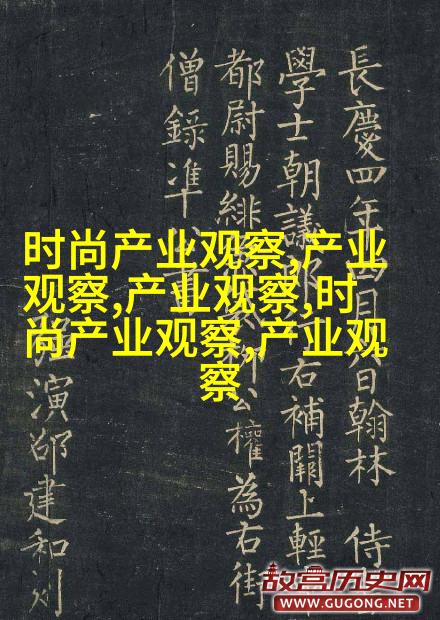 时尚产业观察,产业
观察,产业观察,时
尚产业观察,产业观
察
長慶四年四月日翰林侍
學士朝議郎右補闕上輕
都尉賜緋公權為右街
僧錄准
演邵建和刻
故宫历史网
WWW.GUGONG.NET